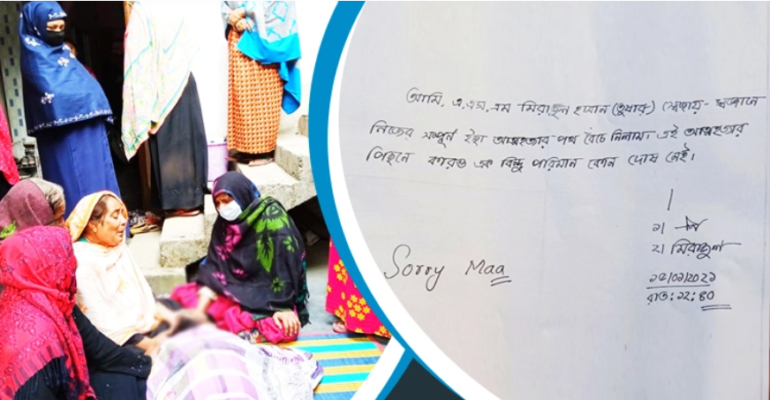 আমি, এ,এস,এম মিরাজুল হাসান (তুষার) স্বেচ্ছায়- স্বজ্ঞানে
নিজের সম্পূর্ন ইচ্ছা আত্মহত্যার পথ বেঁচে নিলাম। এই আত্মহত্যার
পিছনে কারও এক বিন্দু পরিমান কোন দোষ নেই।
১।
Sorry Maa
২। মিরাজুল
রাত: ১২: ৪০